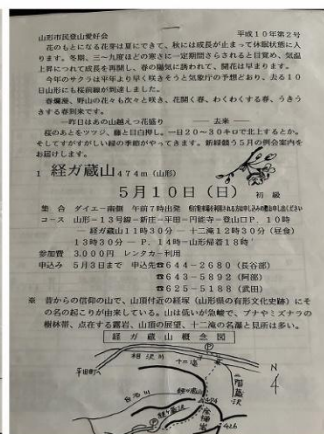 山形市民登山愛好会　平成10年第2号
花のもとになる花芽は夏にできて、秋には成長が止まって休眠状態に入
ります。冬期、三〜九度ほどの寒さに一定期間さらされると目覚め、気温
上昇につれて成長を再開し、春の陽気に誘われて、開花は早まります。
今年のサクラは平年より早く咲きそうと気象庁の予想どおり、去る10
日山形市にも桜前線が到達しました。
春爛漫、野山の花々も次々と咲き、花開く春、わくわくする春、うきう
きする春到来です。
一昨日はあの山越えつ花盛り　――去来――
桜のあとをツツジ、藤と目白押し。一日20〜30キロで北上するとか。
そしてすがすがしい緑の季節がやってきます。新緑競う5月の例会案内を
お届けします。
1　経ガ蔵山 474m (山形)
5月10日(日)　初級
集合　ダイエー南側　午前7時出発
コース　山形―13号線―新庄―平田―円能寺―登山口P.10時
――経ガ蔵山11時30分――十二滝12時30分(昼食)
13時30分――P.14時―山形帰着18時
参加費　3,000円　レンタカー利用
申込み　5月3日まで　申込先☎644-2680(長谷部)
☎643-5892(阿部)
☎625-5188(武田)
※　昔からの信仰の山で、山頂付近の経塚(山形県の有形文化史跡)にそ
の名の起こりが由来している。山は低いが急峻で、ブナやミズナラの
樹林帯、点在する露岩、山頂の展望、十二滝の名瀑と見所は多い。
経ガ蔵山概念図
相沢川
平田町
十二滝
N